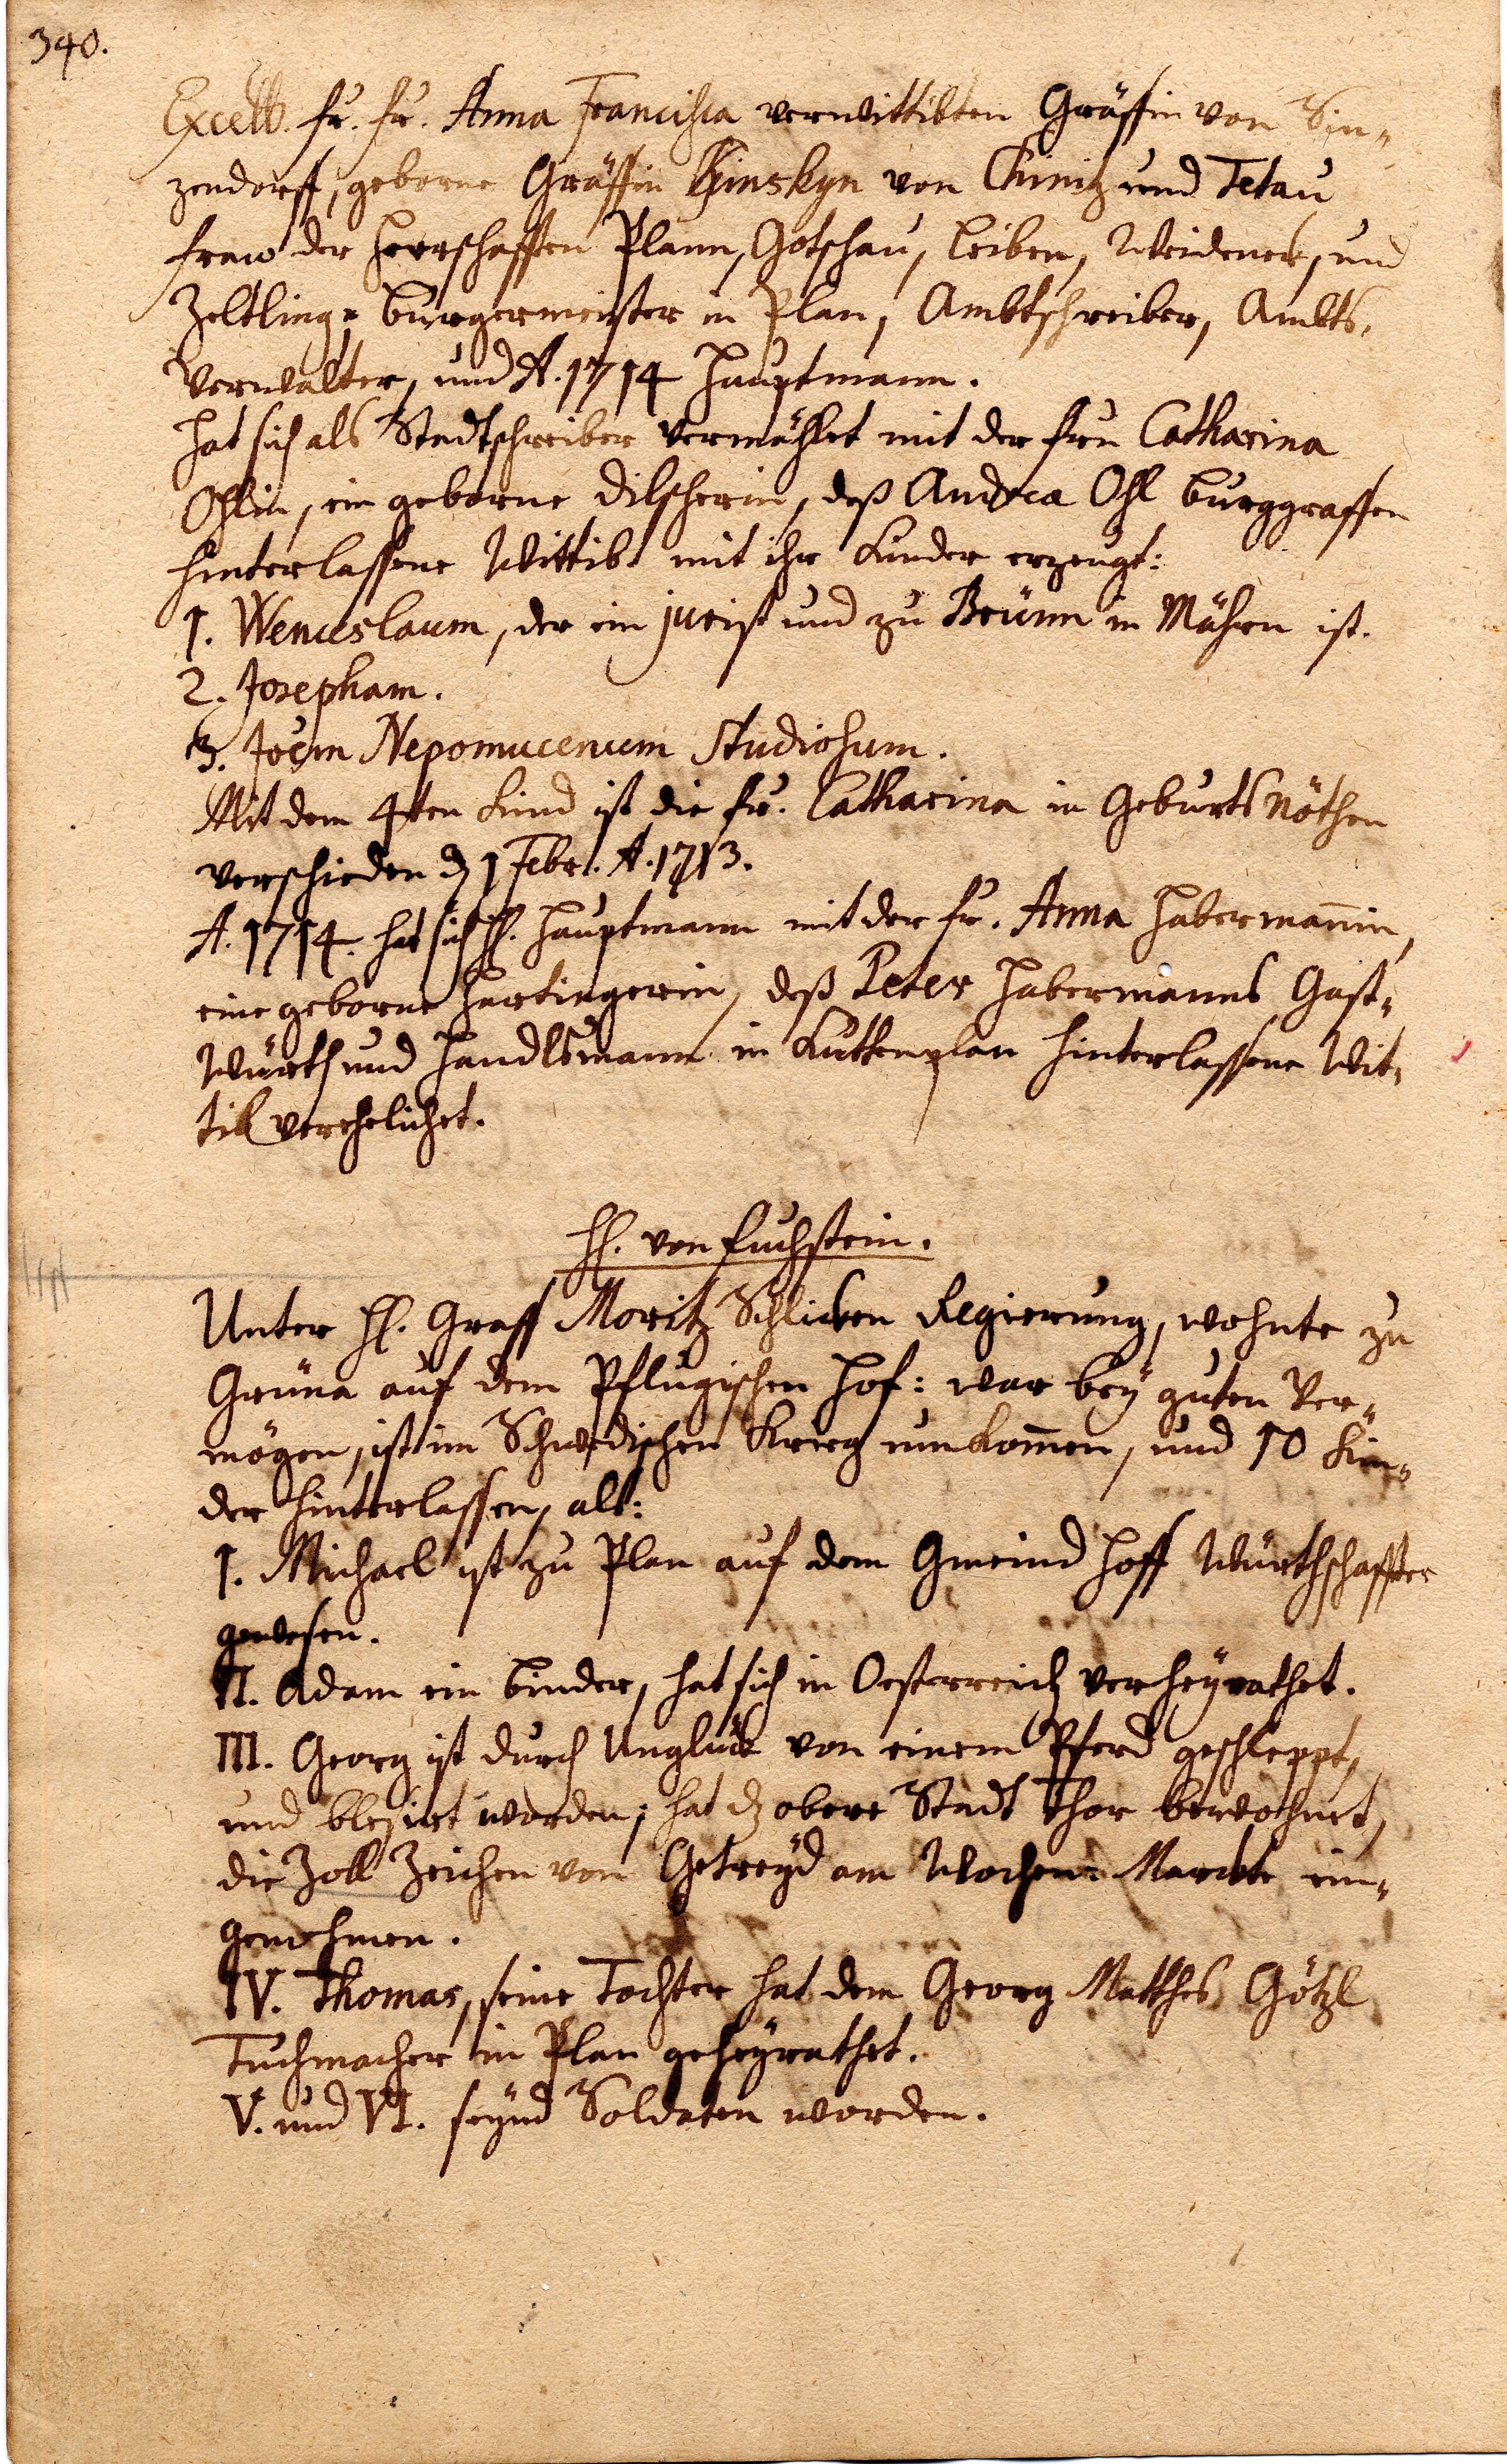 340.
Excell. Fr. Fr. Anna Francisca verwittibten Gräffin von Sin-
zendorff, geborne Gräffin Kinskyn von Chinitz und Tetau
Fraw der Herrschafften Plann, Gotschau, Leiben, Weideneck, und
Zeltling- Burgermeister in Plan, Ambtschreiber, Ambts-
Verwalter, und A. 1714 Hauptmann.
Hat sich als Stadtschreiber vermählet mit der Frau Catharina
Ohlin, ein geborne Dilscherin, deß Andrea Ohl Burggraffen
hinterlassene Wittib mit ihr Kinder erzeugt:
1. Wenceslaum, der ein jurist und zu Brünn in Mähren ist.
2. Josepham.
3. Joem Nepomucenum Studiosum.
Mit dem 4ten Kind ist die Fr. Catharina in Geburts Nöthen
verschieden d 1 Febr. A. 1713.
A. 1714. hat sich H. Hauptmann mit der Fr. Anna Habermañin,
eine geborne Hartingerin, deß Peter Habermanns Gast-
Würth und Handlsmann in Kuttenplan hinterlassene Wit-
tib verehelichet.
H. von Fuchstein.
Unter H. Graff Moritz Schlicken Regierung, wohnte zu
Grüna auf dem Pflugischen Hof: war bey guten Ver-
mögen, ist im Schwedischen Krieg umkom̄en, und 10 Kin-
der hinterlassen, alß:
I. Michael ist zu Plan auf dem Gmeind Hoff Würthschaffter
gewesen.
II. Adam ein Binder, hat sich in Oesterreich verheyrathet.
III. Georg ist durch Unglück von einem Pferd geschleppt,
und blesirt worden; hat dz obere Stadt Thor bewohnet,
die Zoll Zeichen von Getreyd am Wochen-Marckte ein-
genohmen.
IV. Thomas, seine Tochter hat dem Georg Matthes Götzl
Tuchmacher in Plan geheyrathet.
V. und VI. seynd Soldaten worden.